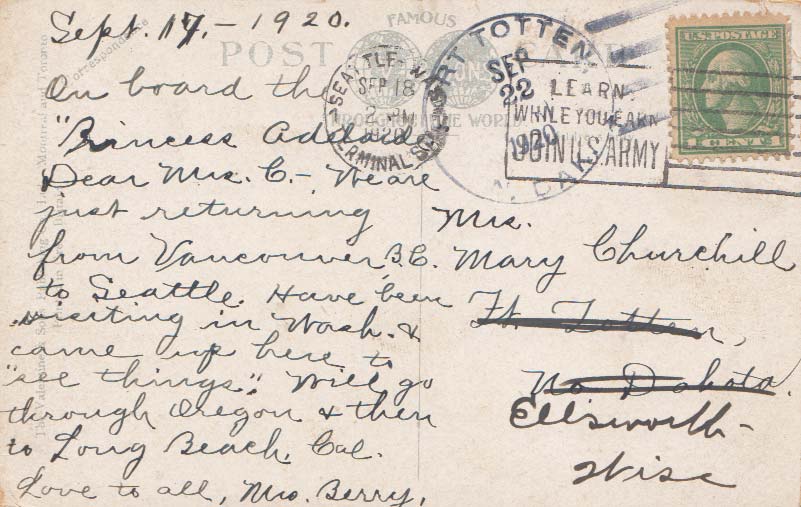 Sept. 17.- 1920.
On board the
"Princess Adelaide
Dear Mrs. C.- We are
just returning
from Vancouver, B.C.
to Seattle. Have been
visiting in Wash. &
came up here to
"see things". Will go
through Oregon & then
to Long Beach, Cal.
Love to all, Mrs. Berry.
FAMOUS
POST CARD
THROUGHOUT THE WORLD
SEATTLE-WASH
SEP 18
2-PM
1920
TERMINAL STA
FORT TOTTEN
SEP
22
1920
N. DAK.
LEARN
WHILE YOU EARN
JOIN U.S. ARMY
U.S. POSTAGE
1 CENT 1
Mrs.
Mary Churchill
Ft. Totten,
No Dakota.
Ellsworth-
Wisc